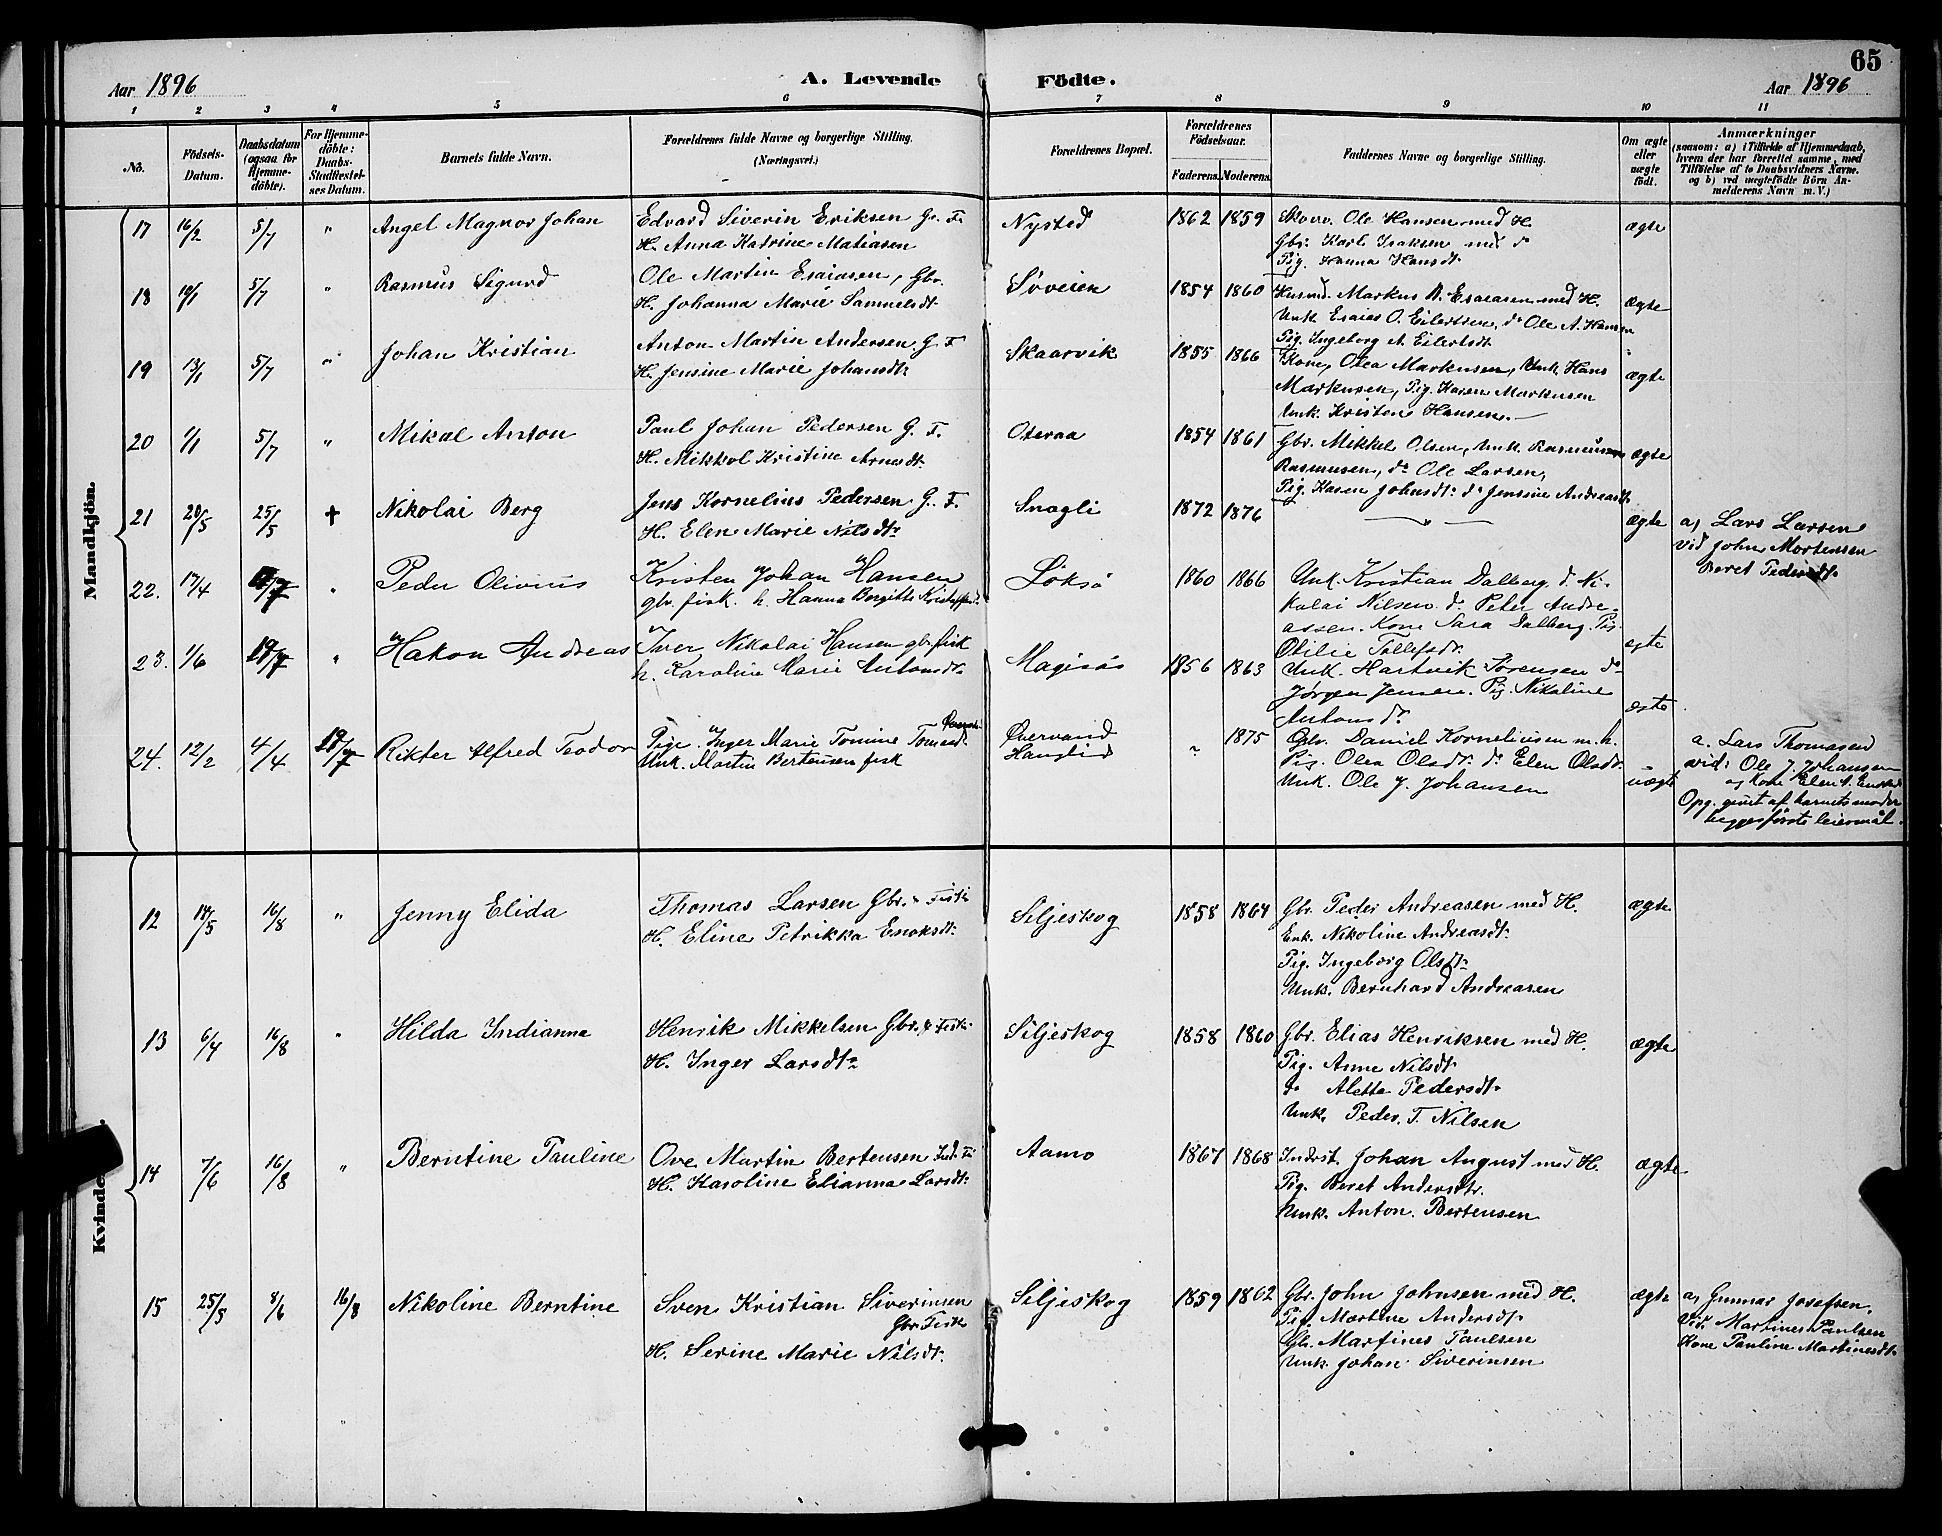 65
Aar 1896 A. Levende Födte. Aar 1896
1 2 3 4 5 6 7 8 9 10 11
No. Födsels-Datum. Daabsdatum (ogsaa for Hjemmedöbte). For Hjemmedöbte: Daabs-Stadfæstelses Datum. Barnets fulde Navn. Forældrenes fulde Navne og borgerlige Stilling. (Næringsvei.) Forældrenes Bopæl. Forældrenes Födselsaar. Faderens. Moderens. Faddernes Navne og borgerlige Stilling. Om ægte eller uægte födt. Anmærkninger (saasom: a) i Tilfælde af Hjemmedaab, hvem der har forrettet samme, med Tilföielse af to Daabsvidners Navne. og b) ved uægtefödte Börn Anmelderens Navn m. V.)
Mandkjön.
17 16/2 5/7 " Angel Magnor Johan Edvard Siverin Eriksen G. F. Nysted 1862 1859 Skoerv. Ole Hansen med H. ægte
H. Anna Katrine Matiasen Gbr. Karl Isaksen med do
Pig. Hanna Hansdt.
18 19/1 5/7 " Rasmus Sigurd Ole Martin Esaiasen, Gbr. Söveien 1854 1860 Husmd. Markus B. Esaiasen med H. ægte
H. Johanna Marie Samuelsdt. Unk. Esaias O. Eilertsen, do Ole A. Hansen
Pig. Ingeborg A. Eilertsdt.
19 13/1 5/7 " Johan Kristian Anton Martin Andersen G. F Skaarvik 1855 1866 Kone, Olea Markusen, Unk. Hans ægte
H. Jensine Marie Johansdt. Markusen, Pig. Karen Markusen
Unk. Kristen Hansen.
20 1/1 5/7 " Mikal Anton Paul Johan Pedersen G. F. Oteraa 1854 1861 Gbr. Mikkel Olsen, Unk. Rasmus ægte
H. Mikkol Kristine Arnesdt. Rasmusen, do Ole Larsen,
Pig. Karen Johnsdt. do Jensine Andreasdt.
21 20/5 25/5 + Nikolai Berg Jens Kornelius Pedersen G. F. Snogli 1872 1876 — " — ægte a, Lars Larsen
H. Elen Marie Nilsdt. vid John Mortensen
Beret Pedersdt.
22. 17/4 19/7 " Peder Olivius Kristen Johan Hansen Löksö 1860 1866 Unk. Kristian Dalberg. d. Ni-
gbr. fisk. h. Hanna Bergitte Kristoffersd. kolai Nilsen. do Peter Andre-
assen. Kone Sara Dalberg. Pig. egte
Otilie Tollefsdt.
23. 1/6 19/7 " Hakon Andreas Iver Nikolai Hansen gbr. fisk Magisös 1856 1863 Unk. Hartvik Sörensen do
h. Karoline Marie Antonsdt. Jörgen Jensen. Pig. Nikoline
Antonsdt. egte.
24. 12/2 4/4 19/7 Rikter Alfred Teodor Pige. Inger Marie Tomine Tomasd. Övervand " 1875 Gbr. Daniel Korneliusen m. h. a. Lars Thomasen
Unk. Martin Bertensen fisk Hanglid Pig. Olea Olsdt. do Elen Olsdt. vid: Ole J. Johansen
Unk. Ole J. Johansen uægte og Kone Elen A.
Opg. givet af barnets moder
begges förste leiermål.
Kvinde
12 14/5 16/8 " Jenny Elida Thomas Larsen Gbr. & Fisk Siljeskog 1858 1864 Gbr. Peder Andreasen med H. ægte
H. Eline Petrikka Enoksdt. Enk. Nikoline Andreasdt.
Pig. Ingeborg Olsdt.
Unk. Bernhard Andreasen
13 6/4 16/8 " Hilda Indianna Henrik Mikkelsen Gbr. & Fisk. Siljeskog 1858 1860 Gbr. Elias Henriksen med H. ægte
H. Inger Larsdt. Pig. Anne Nilsdt.
do Aletta Pedersdt.
Unk. Peder. T. Nilsen
14 7/6 16/8 " Berntine Pauline Ove Martin Bertensen Ind. Fi Aamo 1867 1868 Indrst. Johan August med H. ægte
H. Karoline Elianna Larsdt. Pig. Beret Andersdtr.
Unk. Anton. Bertensen
15 25/5 8/6 16/8 Nikoline Berntine Sven Kristian Siverinsen Siljeskog 1859 1862 Gbr. John Johnsen med H. ægte a, Gunnar Josefsen.
Gbr. Fisk Pig. Martine Andersdt. Vid. Martines Paulsen
H. Serine Marie Nilsdt. Gbr. Martines Paulsen Kone Pauline Martinesdt.
Unk. Johan Siverinsen